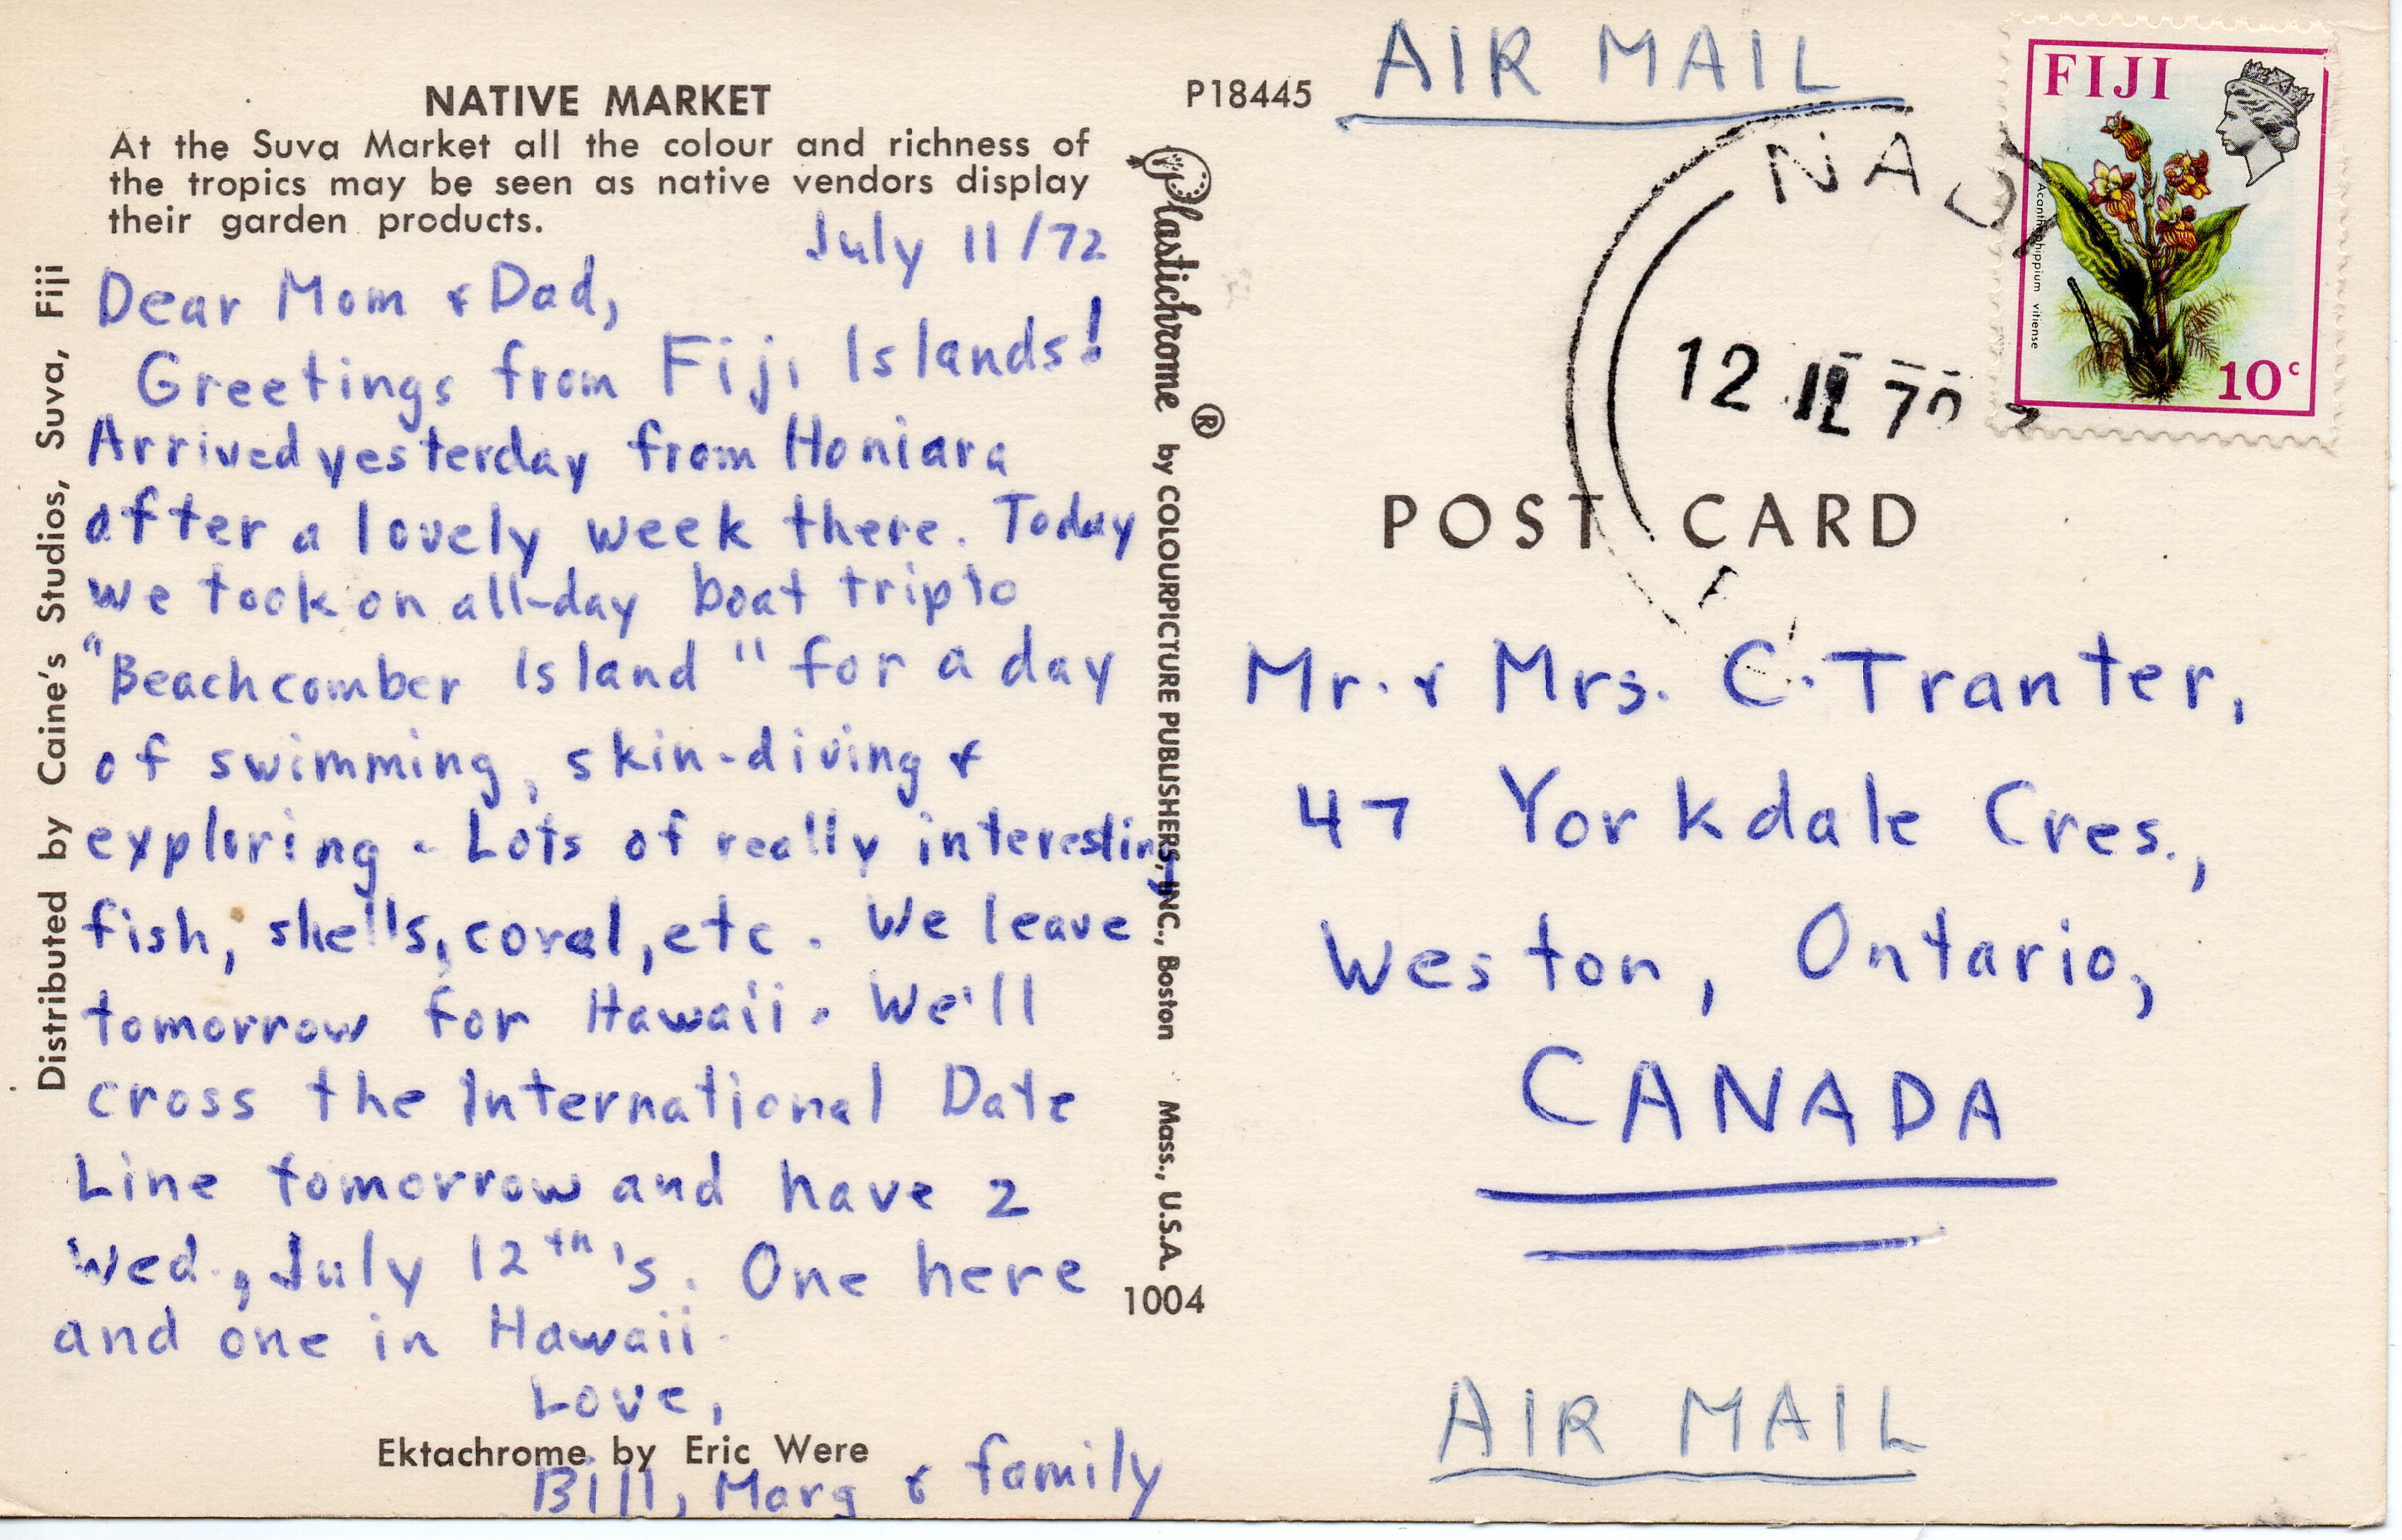 NATIVE MARKET
At the Suva Market all the colour and richness of
the tropics may be seen as native vendors display
their garden products.
July 11/72
Dear Mom & Dad,
Greetings from Fiji Islands!
Arrived yesterday from Honiara
after a lovely week there. Today
we took on all-day boat trip to
"Beachcomber Island" for a day
of swimming, skin-diving &
exploring - Lots of really interesting
fish, shells, coral, etc. We leave
tomorrow for Hawaii. We'll
cross the International Date
Line tomorrow and have 2
Wed., July 12th's. One here
and one in Hawaii.
Love,
Ektachrome by Eric Were
Bill, Marg & family
Distributed by Caine's Studios, Suva, Fiji
P18445
Plastichrome ® by COLOURPICTURE PUBLISHERS, INC., Boston Mass., U.S.A.
1004
AIR MAIL
NADI
12
FIJI
Acanthephippium vitiense
10c
POST CARD
Mr. & Mrs. C. Tranter,
47 Yorkdale Cres.,
Weston, Ontario,
CANADA
AIR MAIL